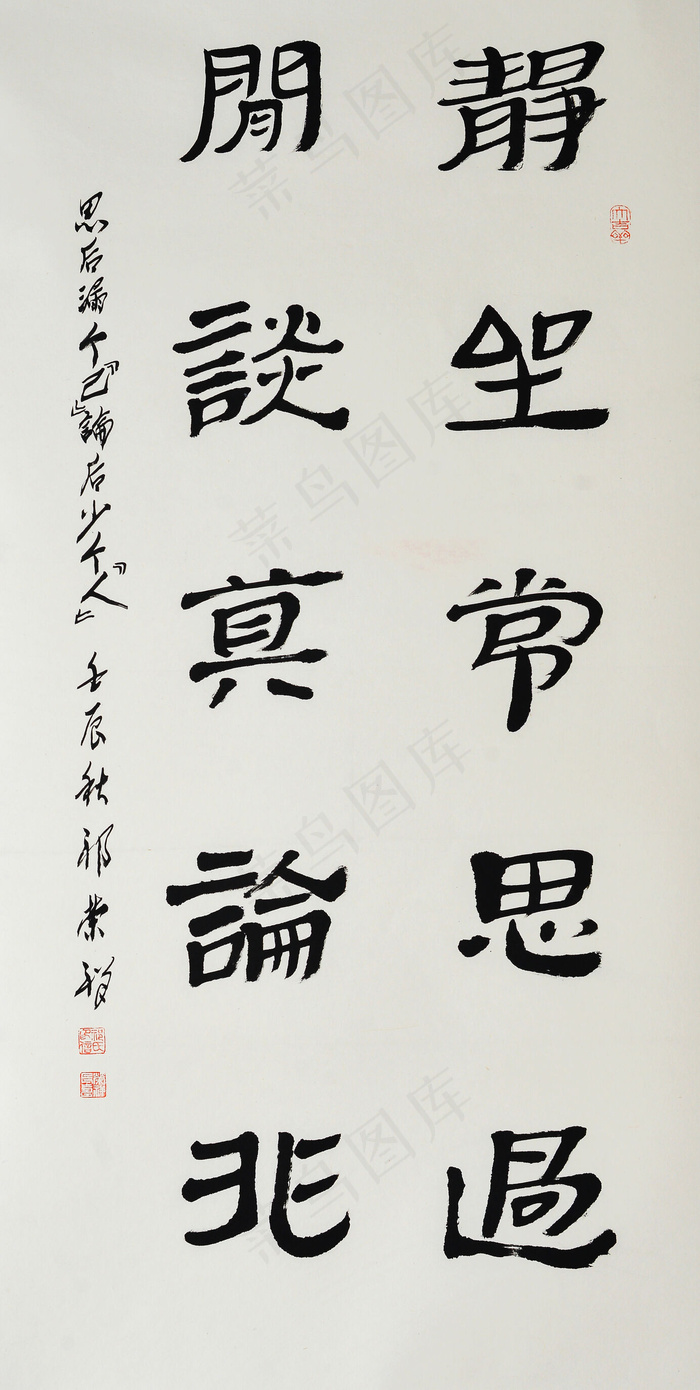 靜坐常思過
閒談莫論非
思后漏个『己』論后少个『人』 壬辰秋 祁
大吉羊
菜鸟图库
菜鸟图库
菜鸟图库
菜鸟图库